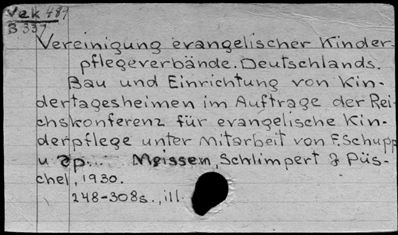 Vek 489
B 337
Vereinigung evangelischer Kinder-
pflegeverbände. Deutschlands.
Bau und Einrichtung von Kin-
dertagesheimen im Auftrage der Rei-
chskonferenz für evangelische Kin-
derpflege unter Mitarbeit von F. Schupp
u. Meissen, Schlimpert & Püs-
chel, 1930.
248-308s., ill.